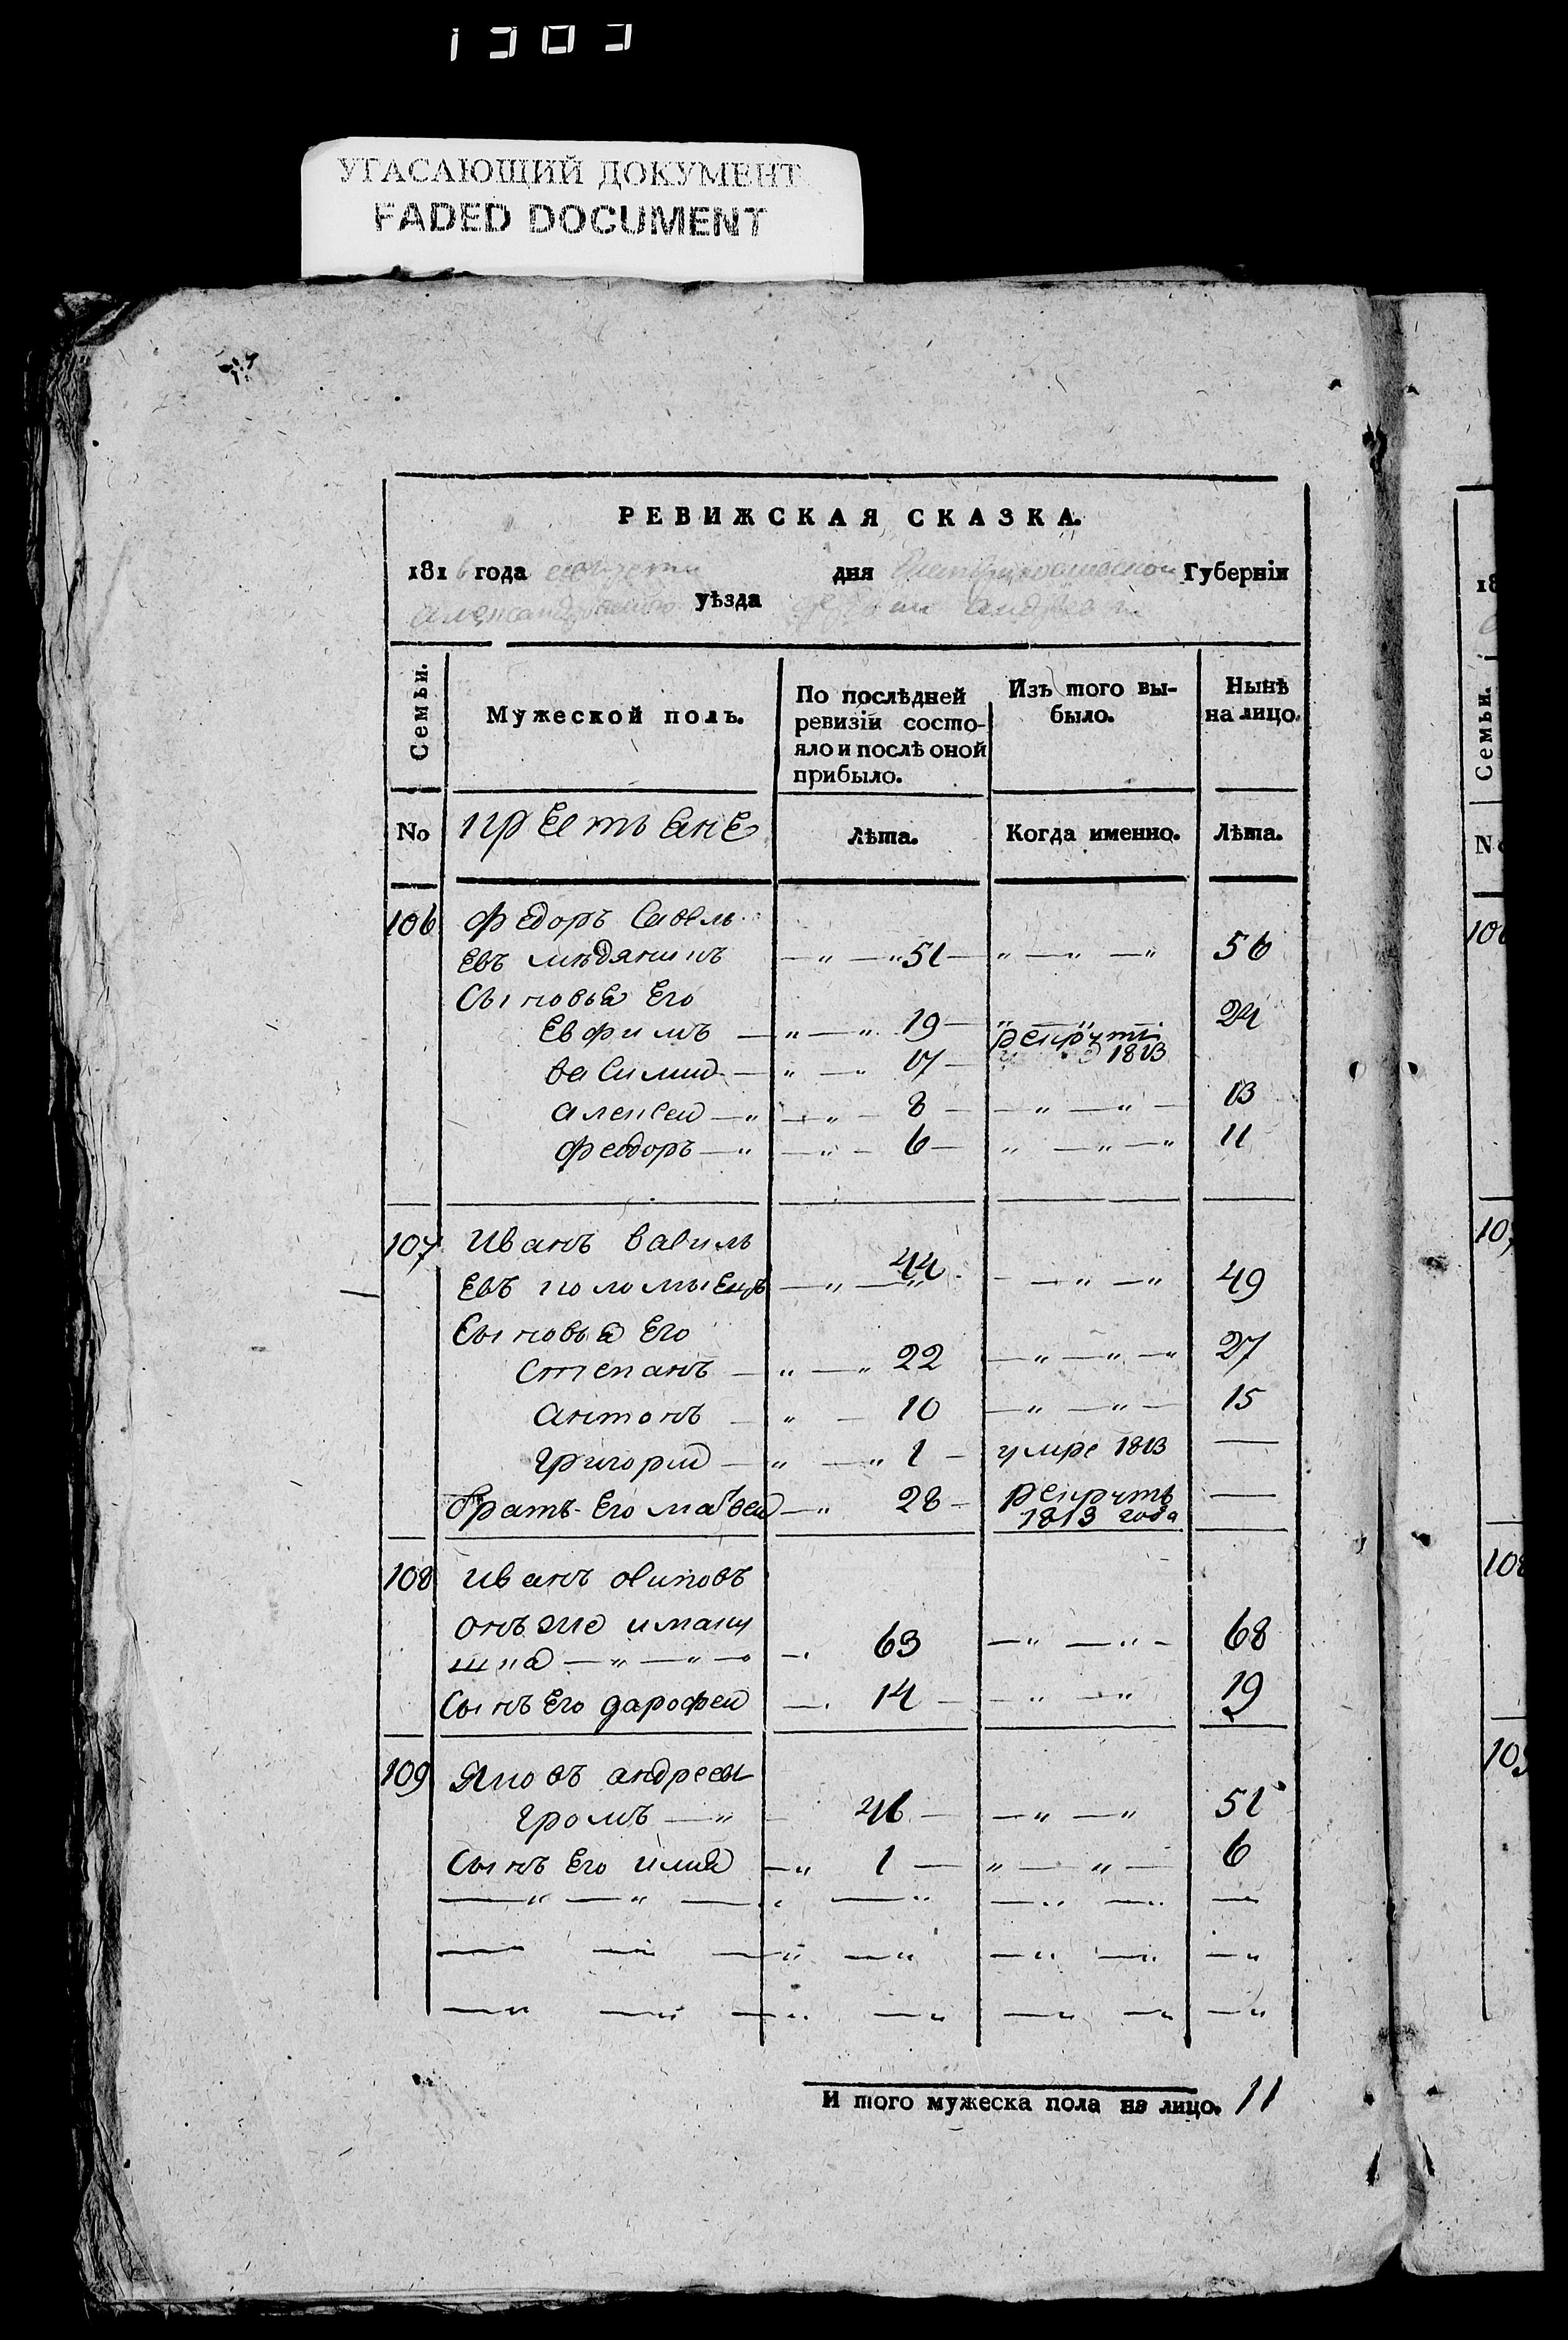 1303
УГАСАЮЩИЙ ДОКУМЕНТ
FADED DOCUMENT
РЕВИЖСКАЯ СКАЗКА.
1816 года дня Екатеринославской Губерніи
александровскаго уѣзда
Семьи. Мужеской полъ. По послѣдней ревизіи состояло и послѣ оной прибыло. Изъ того выбыло. Нынѣ на лицо.
No крестьяне Лѣта. Когда именно. Лѣта.
106 Федоръ Савель
евъ мѣдяникъ — " — " 51 — " — " — " 56
Сыновья Его
Евфимъ — " — " 19 — " — " — 24
василий — " — " 17 — рекрутъ 1813
алексей — " — " — 8 — — " — " — 13
федоръ — " — " — 6 — " — " — " 11
107 Иванъ вавиль
евъ коломыецъ — " — " 44 — — " — " 49
Сыновья Его
Степанъ — " — " 22 — " — " — " 27
антонъ — " — 10 — " — " — 15
григорий — " — " 1 — умре 1813 —
братъ Его матвей — " 28 — рекрутъ —
1813 года
108 Иванъ
онъ же
шка — " — " — 63 — " — " — 68
Сынъ Его дарофей — 14 — — " — " 19
109 Яковъ андреевъ
громъ — " — 46 — — " — " 51
Сынъ Его илия — " 1 — " — " — 6
И того мужеска пола на лицо. 11
18
Семьи.
No
106
107
108
109